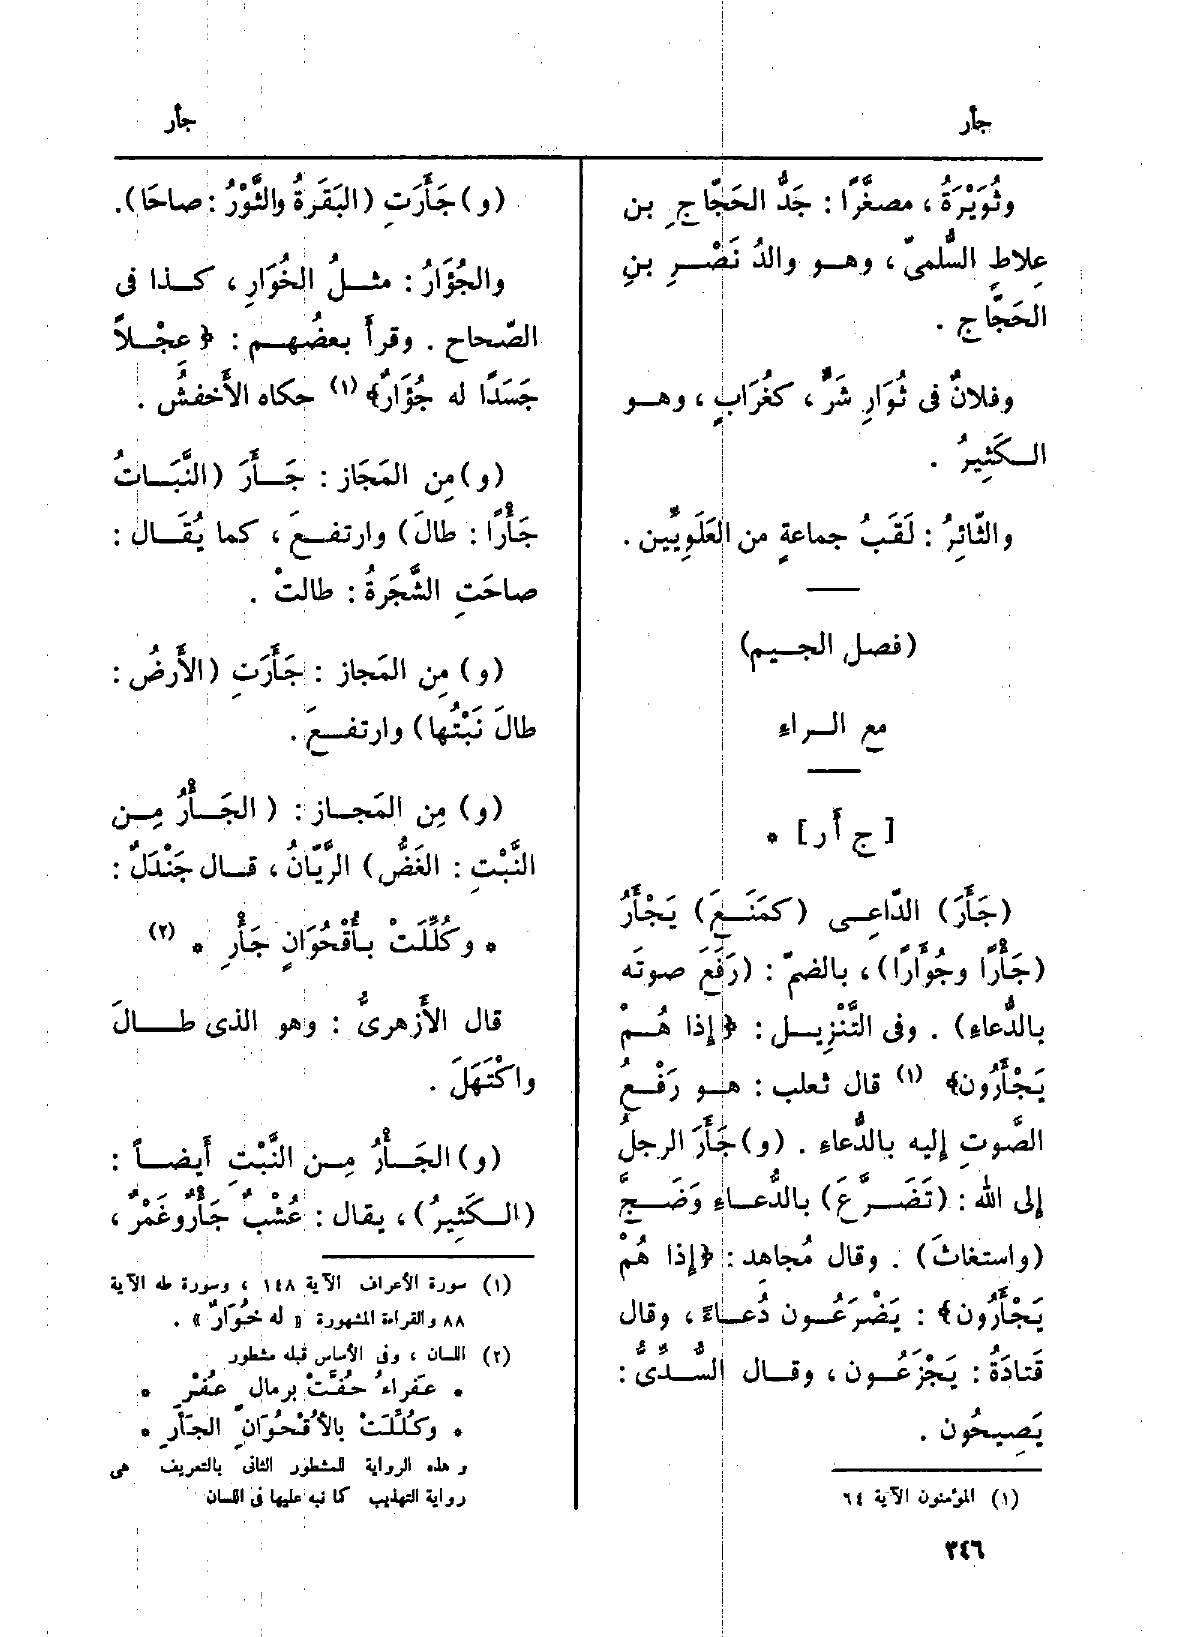 جأر
جأر
وثُوَيْرَةُ ، مصغَّرًا : جَدُّ الحَجّاجِ بن
عِلاطٍ السُّلَمىّ ، وهــو والدُ نَصْـرِ بنِ
الحَجّاج .
وفلانٌ فى ثُوَارِ شَرٍّ ، كغُرَابٍ ، وهــو
الـكَثِيرُ .
والثّائِرُ : لَقَبُ جماعةٍ من العَلَوِيِّين .
(فصل الجـيم)
مع الـراء
[ ج أ ر] *
(جَأَرَ) الدّاعِـى (كمَنَـعَ) يَجْأَرُ
(جَأْرًا وجُؤَارًا)، بالضمّ : (رَفَعَ صوتَه
بالدُّعاءِ) . وفى التَّنْزِيــل : ﴿إِذا هُــمْ
يَجْأَرُون﴾ (١) قال ثعلب : هــو رَفْـعُ
الصَّوتِ إليه بالدُّعاءِ . (و)جَأَرَ الرجلُ
إلى الله : (تَضَـرَّعَ) بالدُّعـاءِ وَضَـجَّ
(واستغاثَ) . وقال مُجاهد : ﴿إِذا هُمْ
يَجْأَرُون﴾ : يَضْرَعُـون دُعـاءً ، وقال
قَتادَةُ : يَجْزَعُـون ، وقـال السُّـدِّىُّ :
يَصِيحُون .
(١) المؤمنون الآية ٦٤
٣٤٦
(و)جَأَرَتِ (البَقَرَةُ والثَّوْرُ : صاحَا).
والجُؤَارُ : مثـلُ الخُوَارِ ، كـذا فى
الصّحاح . وقرأَ بعضُهـم : ﴿ عِجْـلاً
جَسَدًا له جُؤَارٌ﴾ (١) حكاه الأَخفشُ .
(و)مِن المَجَاز : جَــأَرَ (النَّبَـاتُ
جَأْرًا : طالَ) وارتفـعَ ، كما يُقَـال :
صاحَتِ الشَّجَرَةُ : طالتْ .
(و) مِن المَجاز : جَأَرَتِ (الأَرضُ :
طالَ نَبْتُها) وارتفـعَ .
(و) مِن المَجـاز : ( الجَــأْرُ مِـن
النَّبْتِ : الغَضُّ) الرَّيّانُ ، قـال جَنْدَلٌ :
* وكُلِّلَتْ بـأُقْحُوَانٍ جَأْرِ * (٢)
قال الأَزهرىُّ : وهو الذى طـالَ
واكْتَهَلَ .
(و)الجَــأْرُ مِـن النَّبْتِ أَيضـاً :
(الـكَثِيرُ) ، يقال : عُشْبٌ جَأْرٌوغَمْرٌ ،
(١) سورة الأعراف الآية ١٤٨ ، وسورة طه الآية
٨٨ والقراءة المشهورة « له خُوَارٌ » .
(٢) اللسان ، وفى الأساس قبله مشطور
* عَفراءُ حُفَّتْ برمالٍ عُفْرِ *
* وكُلِّلَتْ بالأُقْحُوَانِ الجَأْرِ *
وهذه الرواية للمشطور الثانى بالتعريف هى
رواية التهذيب كما نبه عليها فى اللسان